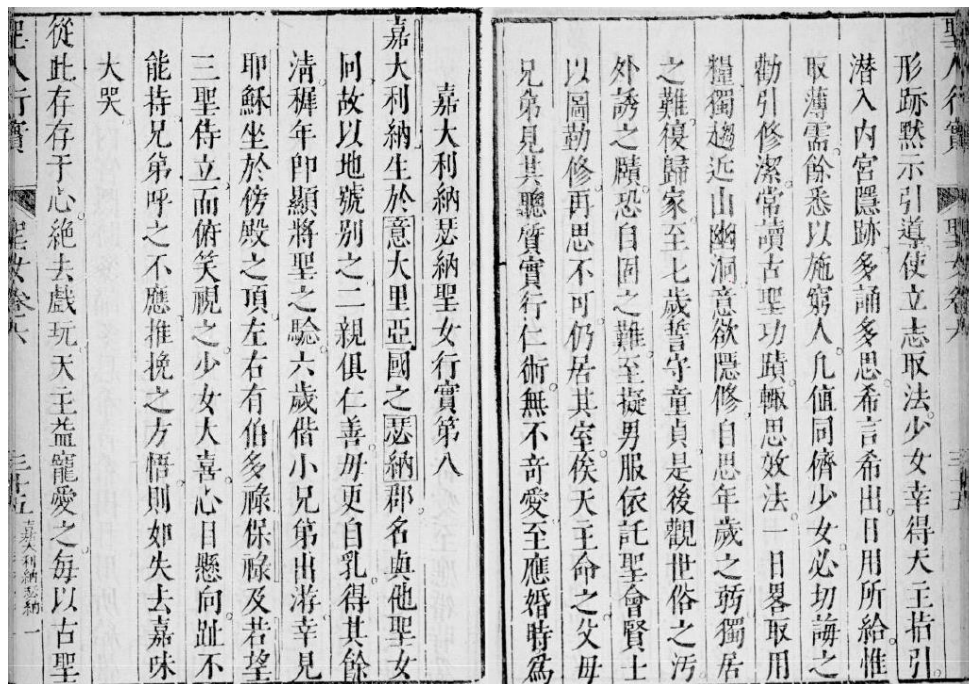 聖人行實 聖女卷六 三十五
形跡默示引導使立志取法少女幸得天主指引
潛入内宮隱跡多誦多思希言希出日用所給惟
取薄需餘悉以施窮人凡値同儕少女必切誨之
勸引修潔常讀古聖功蹟輙思效法一日畧取用
糧獨趨近山幽洞意欲隱修自思年歲之弱獨居
之難復歸家至七歲誓守童貞是後觀世俗之污
外誘之賾恐自固之難至擬男服依託聖會賢士
以圖勤修再思不可仍居其室俟天主命之父母
兄弟見其聽質實行仁術無不竒愛至應婚時爲
嘉大利納瑟納聖女行實第八
嘉大利納生於意大里亞國之瑟納郡名與他聖女
同故以地號别之二親俱仁善毋更自乳得其餘
淸穉年卽顯將聖之驗六歲偕小兄弟出游幸見
耶穌坐於傍殿之頂左右有伯多祿保祿及若望
三聖侍立而俯笑視之少女大喜心目懸向趾不
能持兄弟呼之不應推挽之方悟則如失去嘉味
大哭
從此存存于心絶去戲玩天主益寵愛之每以古聖
聖人行實 聖女卷六 三十五 嘉大利納瑟納 一